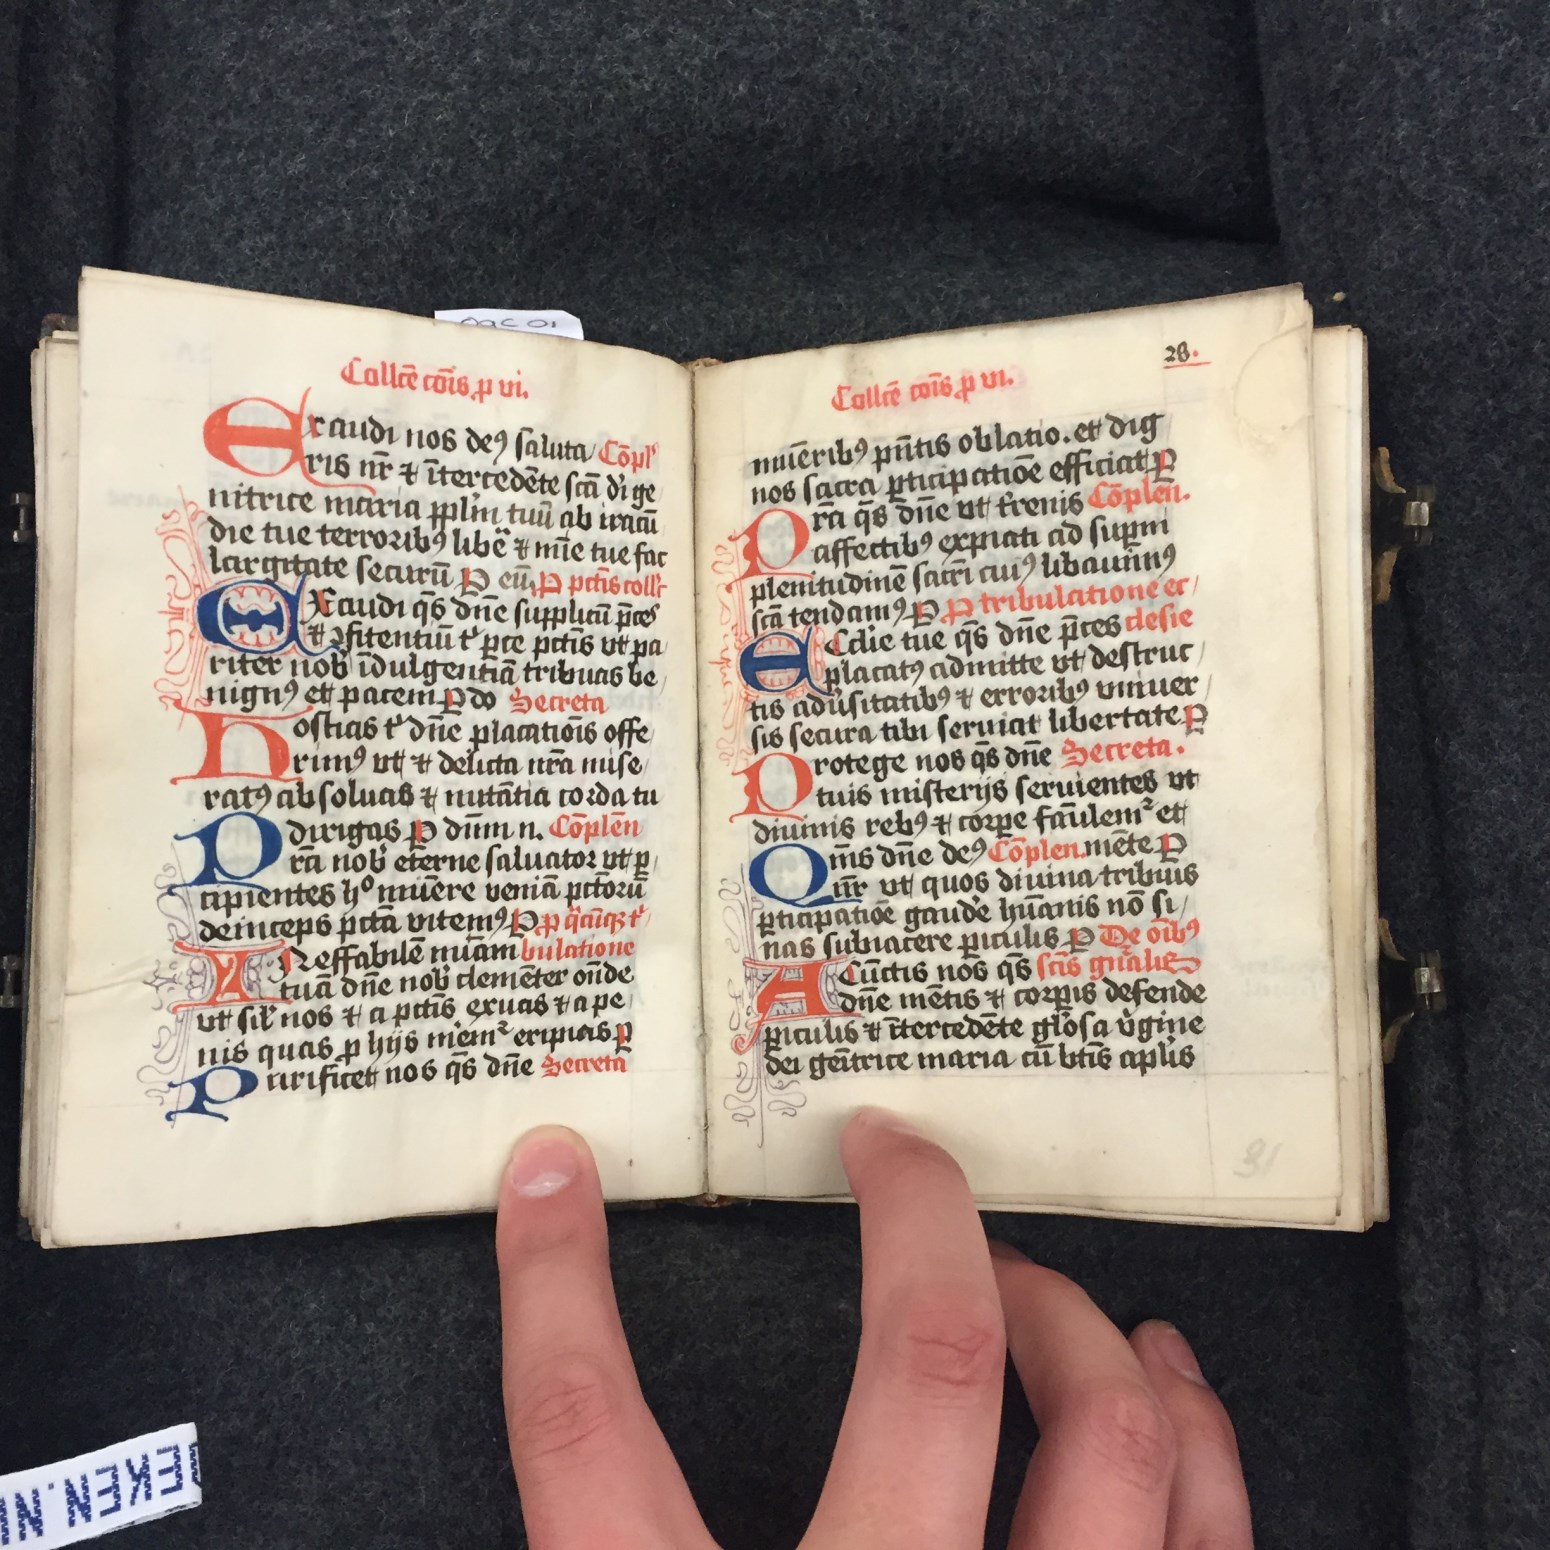 Collcē cōis p vi.
Exaudi nos deꝰ saluta Cōpl'
ris nr̄ ⁊ ītercedēte scā dī ge
nitrice maria pplm̄ tuū ab iracū
die tue terroribꝰ libe ⁊ mīe tue fac
largitate securū P eū. P pctīs coll'
Exaudi qs̄ dn̄e supplicū p̄ces
⁊ ꝯfitentiū t' pce pctīs vt pa
riter nob' īdulgentiā tribuas be
nignꝰ et pacem P do Secreta
Hostias t' dn̄e placatiōis offe
rimꝰ vt ⁊ delicta nr̄a mise
ratꝰ absoluas ⁊ nutātia corda tu
dirigas P dūm n. Cōplēn
Prā nob' eterne saluator vt p
cipientes hº mūere veniā pctōrū
deinceps pctā vitemꝰ P p q̄cūqꝫ t'
Ineffabilē mīam bulatione
tuā dn̄e nob' clemēter onde
vt sil' nos ⁊ a pctīs exuas ⁊ a pe
nis quas p hijs mem² eripias P
Purificet nos qs̄ dn̄e Secreta
28.
Collcē cōis p vi.
mūeribꝰ pn̄tis oblatio. et dig
nos sacra pticipatiōe efficiat P
Prā qs̄ dn̄e vt t'renis Cōplēn.
affectibꝰ expiati ad supni
plenitudinē sacrī cuiꝰ libauimꝰ
scā tendamꝰ P P tribulatione ec
Ecclīe tue qs̄ dn̄e p̄ces clesie
placatꝰ admitte vt destruc
tis adūsitatibꝰ ⁊ erroribꝰ vniuer
sis secura tibi seruiat libertate P
Protege nos qs̄ dn̄e Secreta.
tuis misterijs seruientes vt
diuinis rebꝰ ⁊ corpe fāulem² et
Qm̄s dn̄e deꝰ Cōplen. mēte P
nr̄ vt quos diuina tribuis
pticipatiōe gaude hūanis nō si
nas subiacere piculis P De oībꝰ
A Cūctis nos qs̄ scīs gn̄alis
dn̄e mētis ⁊ corpis defende
piculis ⁊ ītercedēte glōsa v̄gine
dei genitrice maria cū btīs aplīs
31